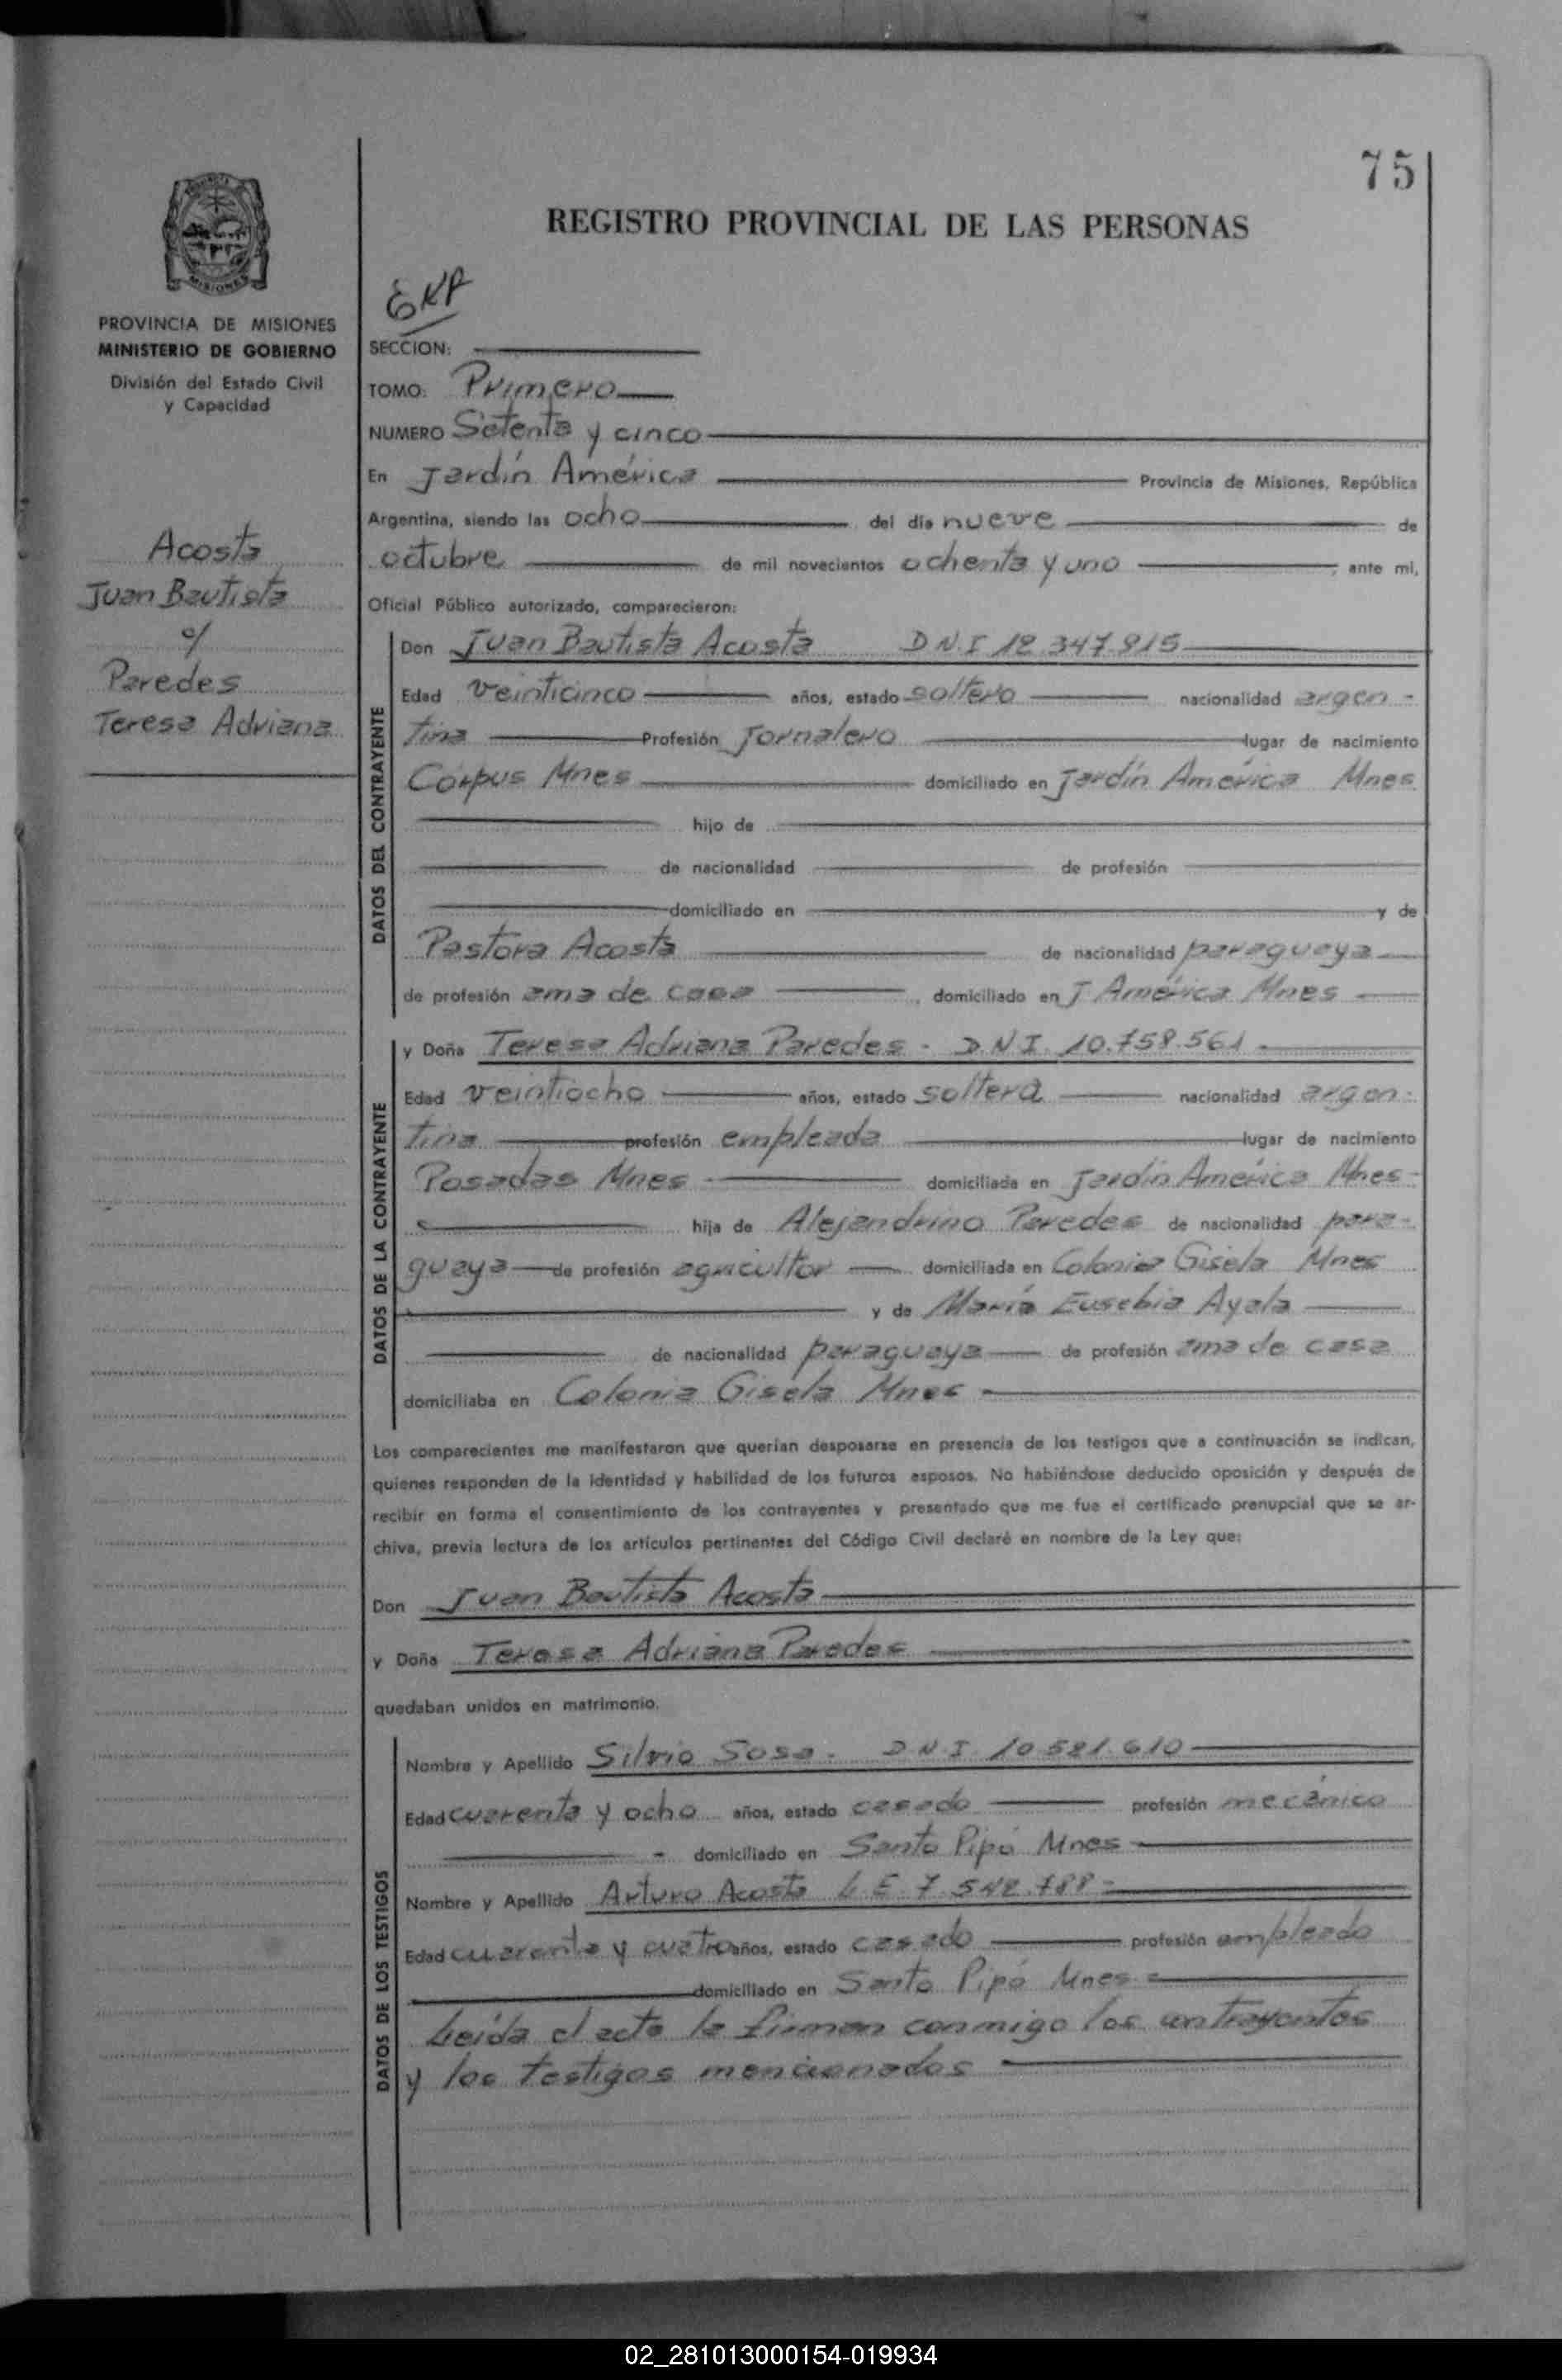 75
REGISTRO PROVINCIAL DE LAS PERSONAS
MISIONES
PROVINCIA DE MISIONES
MINISTERIO DE GOBIERNO
División del Estado Civil
y Capacidad
Acosta
Juan Bautista
c/
Paredes
Teresa Adriana
SECCION:
TOMO: Primero
NUMERO Setenta y cinco
En Jardín América Provincia de Misiones, República
Argentina, siendo las ocho del día nueve de
octubre de mil novecientos ochenta y uno, ante mi,
Oficial Público autorizado, comparecieron:
DATOS DEL CONTRAYENTE
Don Juan Bautista Acosta D.N.I 12.347.915
Edad veinticinco años, estado soltero nacionalidad argen-
tina Profesión Jornalero lugar de nacimiento
Corpus Mnes domiciliado en Jardín América Mnes
hijo de
de nacionalidad de profesión
domiciliado en y de
Pastora Acosta de nacionalidad paraguaya
de profesión ama de casa, domiciliado en J América Mnes
DATOS DE LA CONTRAYENTE
y Doña Teresa Adriana Paredes - D.N.I. 10.758.561.
Edad veintiocho años, estado soltera nacionalidad argen-
tina profesión empleada lugar de nacimiento
Posadas Mnes domiciliada en Jardín América Mnes-
hija de Alejandrino Paredes de nacionalidad para-
guaya de profesión agricultor domiciliada en Colonia Gisela Mnes
y de María Eusebia Ayala
de nacionalidad paraguaya de profesión ama de casa
domiciliaba en Colonia Gisela Mnes
Los comparecientes me manifestaron que querían desposarse en presencia de los testigos que a continuación se indican,
quienes responden de la identidad y habilidad de los futuros esposos. No habiéndose deducido oposición y después de
recibir en forma el consentimiento de los contrayentes y presentado que me fue el certificado prenupcial que se ar-
chiva, previa lectura de los artículos pertinentes del Código Civil declaré en nombre de la Ley que:
Don Juan Bautista Acosta
y Doña Teresa Adriana Paredes
quedaban unidos en matrimonio.
DATOS DE LOS TESTIGOS
Nombre y Apellido Silvio Sosa. D.N.I. 10.581.610
Edad cuarenta y ocho años, estado casado profesión mecánico
domiciliado en Santo Pipó Mnes
Nombre y Apellido Arturo Acosta L.E. 7.542.788-
Edad cuarenta y cuatro años, estado casado profesión empleado
domiciliado en Santo Pipó Mnes
Leída el acta la firman conmigo los contrayentes
y los testigos mencionados
02_281013000154-019934